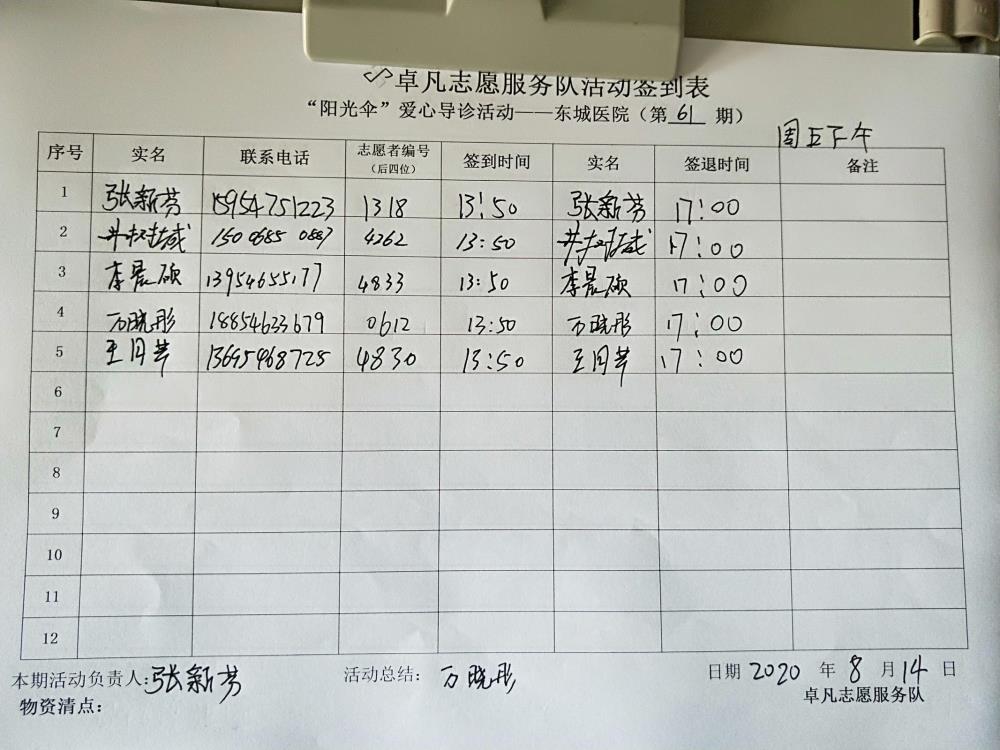 卓凡志愿服务队活动签到表
“阳光伞”爱心导诊活动——东城医院（第 61 期）
周五下午
序号 实名 联系电话 志愿者编号（后四位） 签到时间 实名 签退时间 备注
1 张新芬 15954751223 1318 13:50 张新芬 17:00
2 150 0685 0887 4262 13:50 17:00
3 李晨硕 13954655177 4833 13:50 李晨硕 17:00
4 万晓彤 18854633679 0612 13:50 万晓彤 17:00
5 王月芹 13695468725 4830 13:50 王月芹 17:00
6
7
8
9
10
11
12
本期活动负责人:张新芬 活动总结: 万晓彤 日期 2020 年 8 月 14 日
物资清点： 卓凡志愿服务队